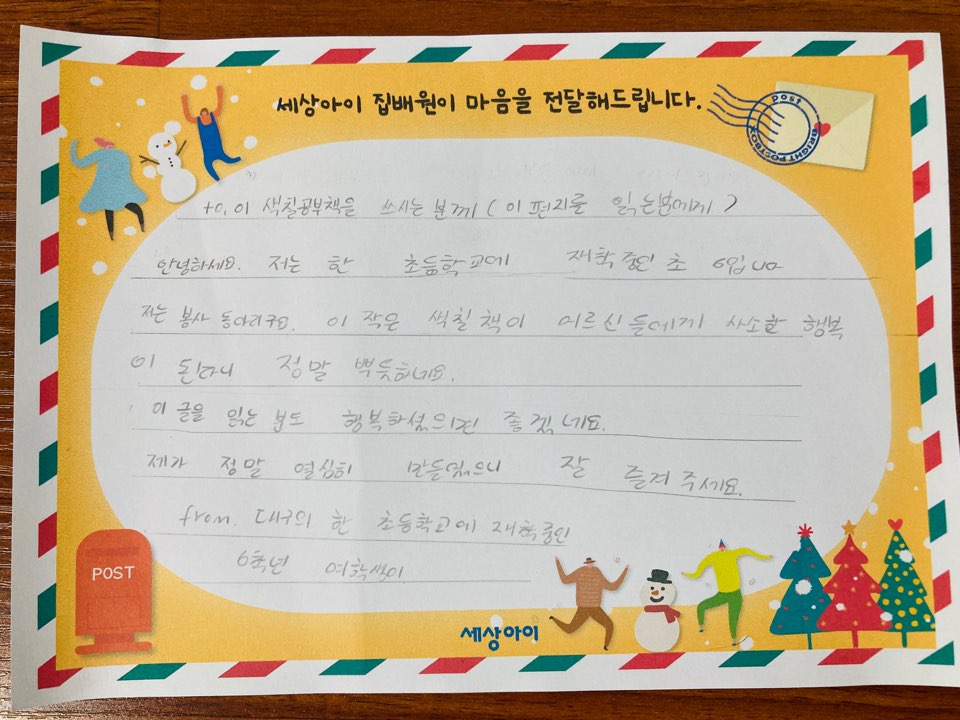 세상아이 집배원이 마음을 전달해드립니다.
post
BRIGHT POSTBOX
to. 이 색칠공부책을 쓰시는 분께 (이 편지를 읽는분에게)
안녕하세요. 저는 한 초등학교에 재학중인 초 6입니다
저는 봉사 동아리구요. 이 작은 색칠책이 어르신들에게 사소한 행복
이 된다니 정말 뿌듯하네요.
이 글을 읽는 분도 행복하셨으면 좋겠네요.
제가 정말 열심히 만들었으니 잘 즐겨주세요.
from. 대구의 한 초등학교에 재학중인
6학년 여학생이
POST
세상아이